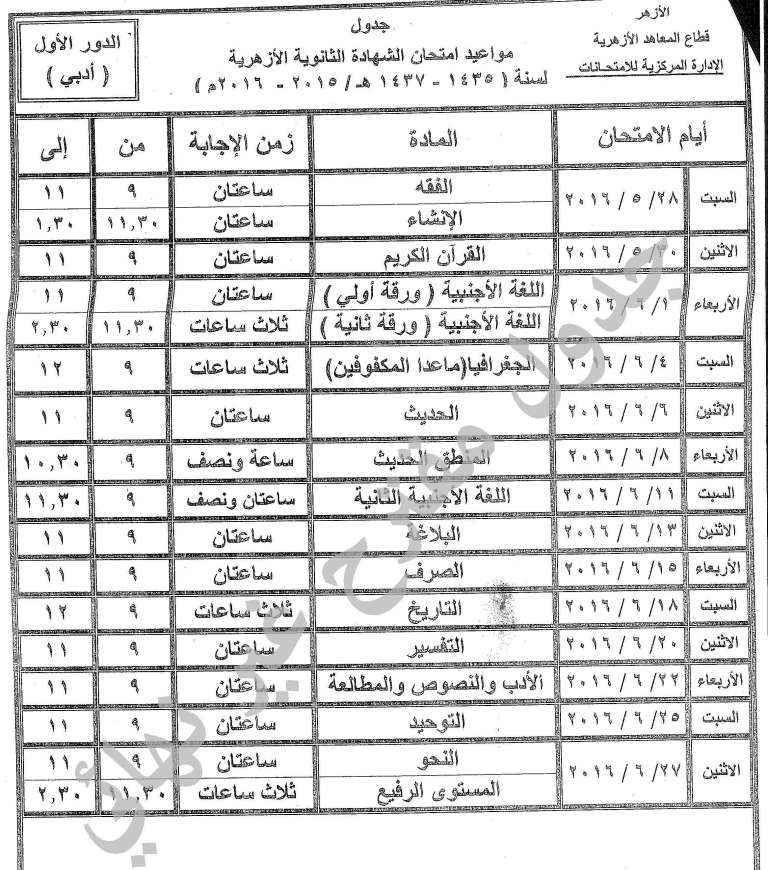 الأزهر
قطاع المعاهد الأزهرية
الإدارة المركزية للامتحانات
جدول
مواعيد امتحان الشهادة الثانوية الأزهرية
لسنة ( ١٤٣٥ - ١٤٣٧ هـ/ ٢٠١٥ - ٢٠١٦م )
الدور الأول
( أدبي )
أيام الامتحان المادة زمن الإجابة من إلى
السبت ٢٨/ ٥ / ٢٠١٦ الفقه ساعتان ٩ ١١
الإنشاء ساعتان ١١,٣٠ ١,٣٠
الاثنين ٣٠/ ٥ / ٢٠١٦ القرآن الكريم ساعتان ٩ ١١
الأربعاء ١/ ٦ / ٢٠١٦ اللغة الأجنبية ( ورقة أولي ) ساعتان ٩ ١١
اللغة الأجنبية ( ورقة ثانية ) ثلاث ساعات ١١,٣٠ ٢,٣٠
السبت ٤/ ٦ / ٢٠١٦ الجغرافيا(ماعدا المكفوفين) ثلاث ساعات ٩ ١٢
الاثنين ٦/ ٦ / ٢٠١٦ الحديث ساعتان ٩ ١١
الأربعاء ٨/ ٦ / ٢٠١٦ المنطق الحديث ساعة ونصف ٩ ١٠,٣٠
السبت ١١/ ٦ / ٢٠١٦ اللغة الأجنبية الثانية ساعتان ونصف ٩ ١١,٣٠
الاثنين ١٣/ ٦ / ٢٠١٦ البلاغة ساعتان ٩ ١١
الأربعاء ١٥/ ٦ / ٢٠١٦ الصرف ساعتان ٩ ١١
السبت ١٨/ ٦ / ٢٠١٦ التاريخ ثلاث ساعات ٩ ١٢
الاثنين ٢٠/ ٦ / ٢٠١٦ التفسير ساعتان ٩ ١١
الأربعاء ٢٢/ ٦ / ٢٠١٦ الأدب والنصوص والمطالعة ساعتان ٩ ١١
السبت ٢٥/ ٦ / ٢٠١٦ التوحيد ساعتان ٩ ١١
الاثنين ٢٧/ ٦ / ٢٠١٦ النحو ساعتان ٩ ١١
المستوى الرفيع ثلاث ساعات ١١,٣٠ ٢,٣٠
جدول مقترح غير نهائي